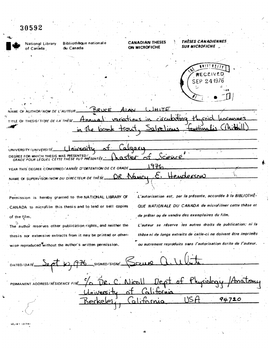 30592
National Library of Canada
Bibliothèque nationale du Canada
CANADIAN THESES ON MICROFICHE
THÈSES CANADIENNES SUR MICROFICHE
RECEIVED
SEP 24 1976
NAME OF AUTHOR/NOM DE L'AUTEUR Bruce Alan White
TITLE OF THESIS/TITRE DE LA THÈSE Annual variations in circulating thyroid hormones
in the brook trout, Salvelinus fontinalis (Mitchill)
UNIVERSITY/UNIVERSITÉ University of Calgary
DEGREE FOR WHICH THESIS WAS PRESENTED/
GRADE POUR LEQUEL CETTE THÈSE FUT PRÉSENTÉE Master of Science
YEAR THIS DEGREE CONFERRED/ANNÉE D'OBTENTION DE CE GRADE 1976
NAME OF SUPERVISOR/NOM DU DIRECTEUR DE THÈSE Dr Nancy E. Henderson
Permission is hereby granted to the NATIONAL LIBRARY OF
CANADA to microfilm this thesis and to lend or sell copies
of the film.
The author reserves other publication rights, and neither the
thesis nor extensive extracts from it may be printed or other-
wise reproduced without the author's written permission.
L'autorisation est, par la présente, accordée à la BIBLIOTHÈ-
QUE NATIONALE DU CANADA de microfilmer cette thèse et
de prêter ou de vendre des exemplaires du film.
L'auteur se réserve les autres droits de publication; ni la
thèse ni de longs extraits de celle-ci ne doivent être imprimés
ou autrement reproduits sans l'autorisation écrite de l'auteur.
DATED/DATÉ Sept 10, 1976 SIGNED/SIGNÉ Bruce A. White
PERMANENT ADDRESS/RÉSIDENCE FIXE c/o Dr. C. Nicoll Dept of Physiology/Anatomy
University of California
Berkeley, California USA 94720